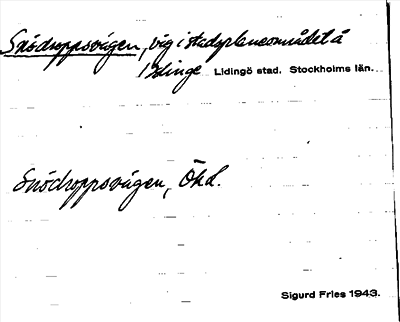 Snödroppsvägen, väg i stadsplaneområdet å
Islinge Lidingö stad. Stockholms län.
Snödroppsvägen, Ökd.
Sigurd Fries 1943.